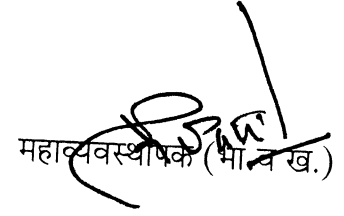 महाव्यवस्थापक (भा. व ख.)